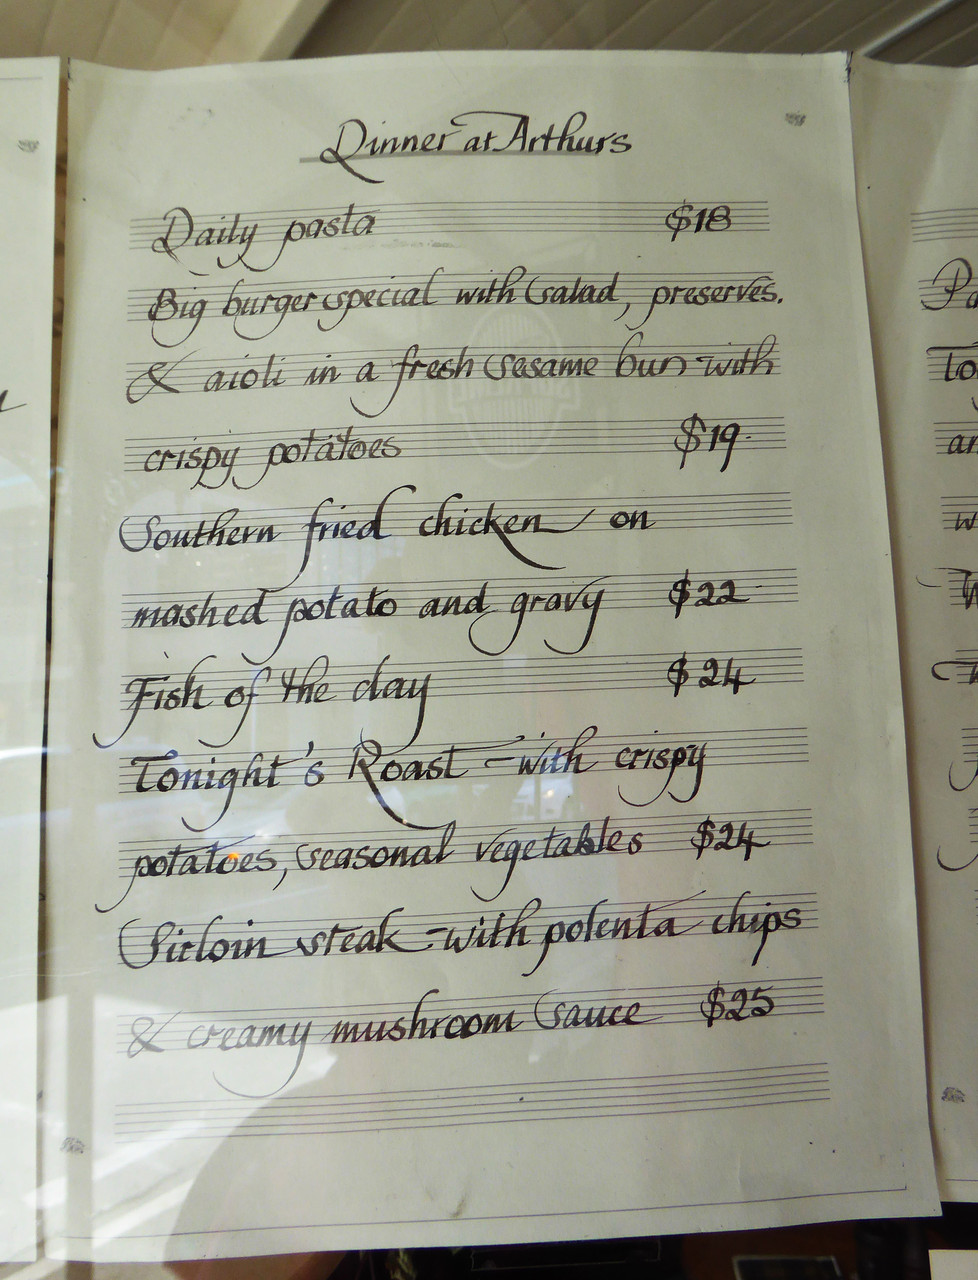 Dinner at Arthurs
Daily pasta $18
Big burger special with salad, preserves.
& aioli in a fresh sesame bun with
crispy potatoes $19.
Southern fried chicken on
mashed potato and gravy $22
Fish of the day $24
Tonight's Roast - with crispy
potatoes, seasonal vegetables $24
Sirloin steak - with polenta chips
& creamy mushroom sauce $25